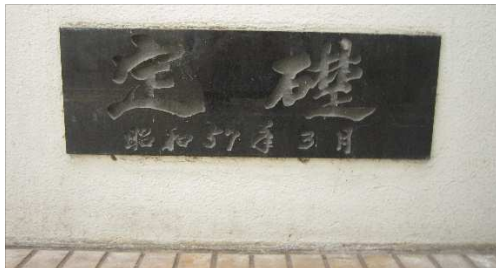 定礎
昭和57年3月